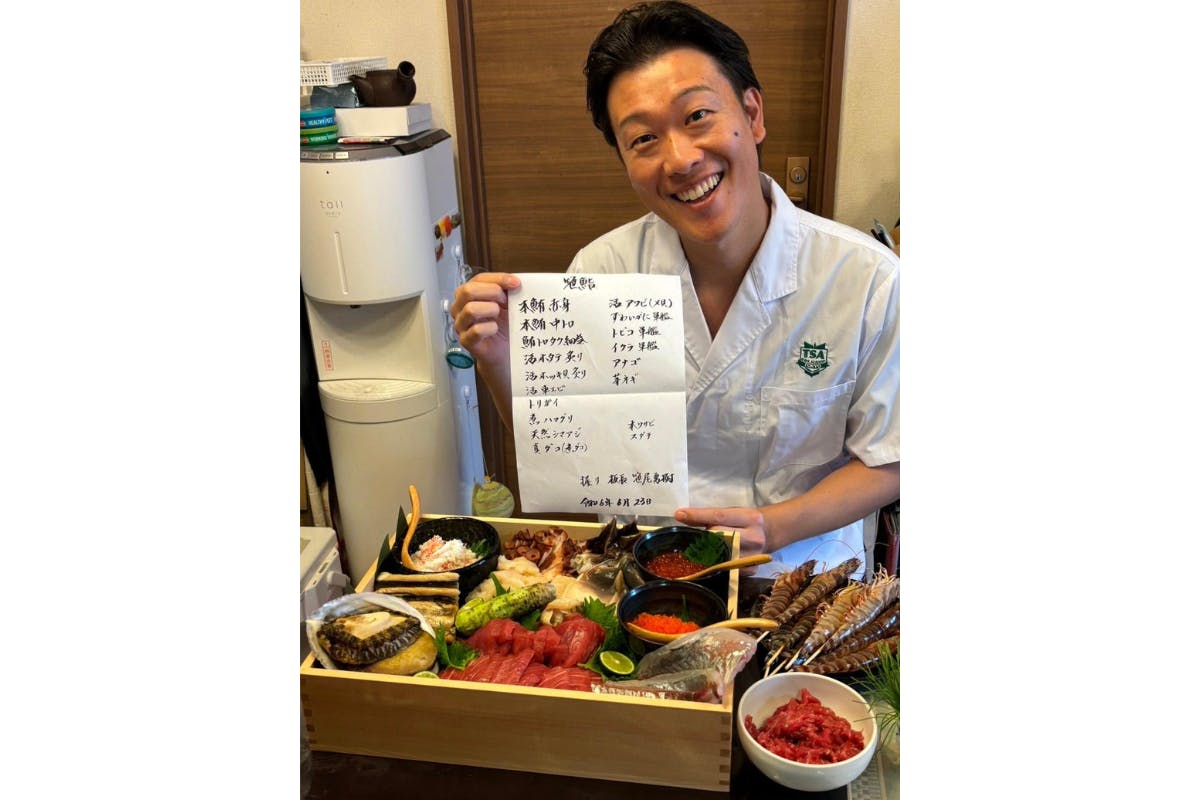 本鮪 赤身
本鮪 中トロ
鮪トロタク細巻
活ホタテ炙り
活ホッキ貝炙り
活車エビ
トリガイ
煮ハマグリ
天然シマアジ
真ダコ(煮ダコ)
活アワビ(メ貝)
ずわいがに軍艦
トビコ軍艦
イクラ軍艦
アナゴ
芽ネギ
本ワサビ
スダチ
握り 板長
令和6年6月23日
TSA
TOKYO